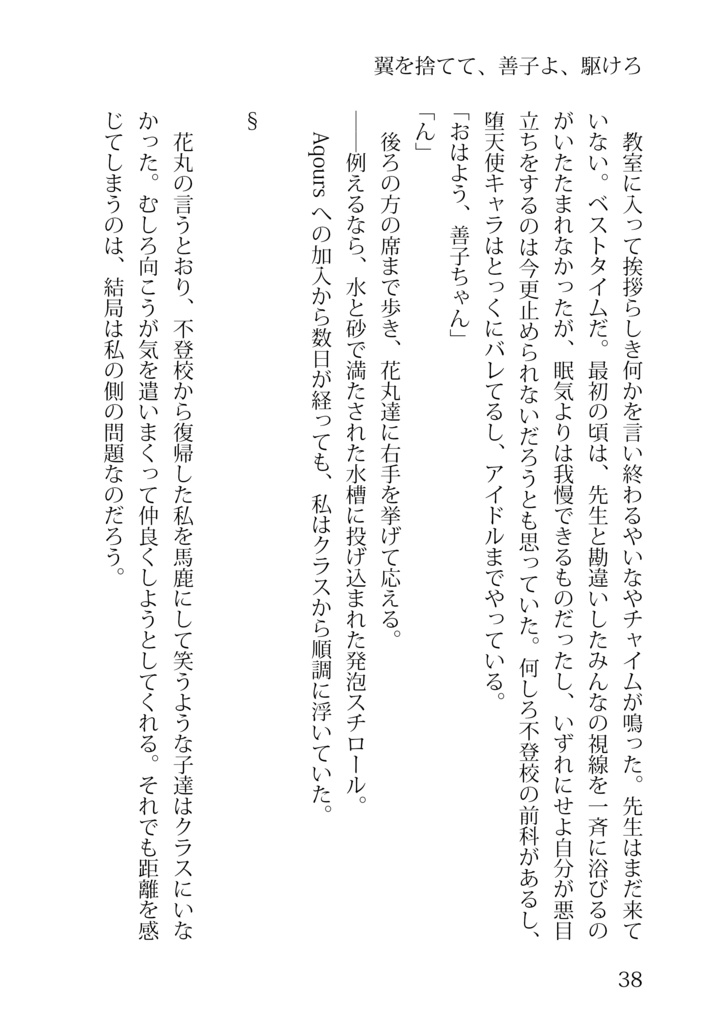 翼を捨てて、善子よ、駆けろ
　教室に入って挨拶らしき何かを言い終わるやいなやチャイムが鳴った。先生はまだ来て
いない。ベストタイムだ。最初の頃は、先生と勘違いしたみんなの視線を一斉に浴びるの
がいたたまれなかったが、眠気よりは我慢できるものだったし、いずれにせよ自分が悪目
立ちをするのは今更止められないだろうとも思っていた。何しろ不登校の前科があるし、
堕天使キャラはとっくにバレてるし、アイドルまでやっている。
「おはよう、善子ちゃん」
「ん」
　後ろの方の席まで歩き、花丸達に右手を挙げて応える。
――例えるなら、水と砂で満たされた水槽に投げ込まれた発泡スチロール。
　Aqours への加入から数日が経っても、私はクラスから順調に浮いていた。
§
　花丸の言うとおり、不登校から復帰した私を馬鹿にして笑うような子達はクラスにいな
かった。むしろ向こうが気を遣いまくって仲良くしようとしてくれる。それでも距離を感
じてしまうのは、結局は私の側の問題なのだろう。
38